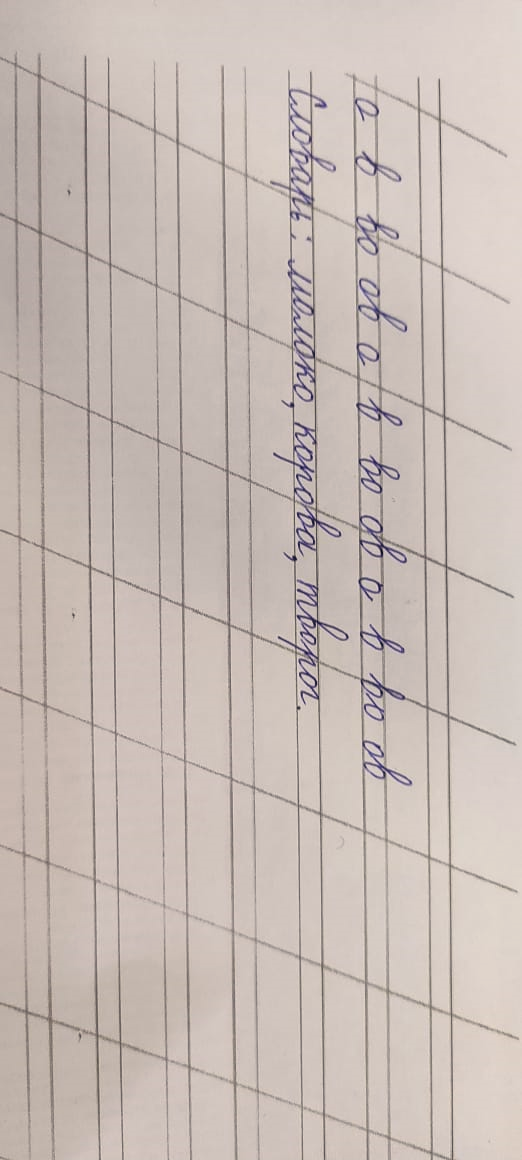 о в во ов о в во ов о в во ов
Словарь: молоко, корова, творог.